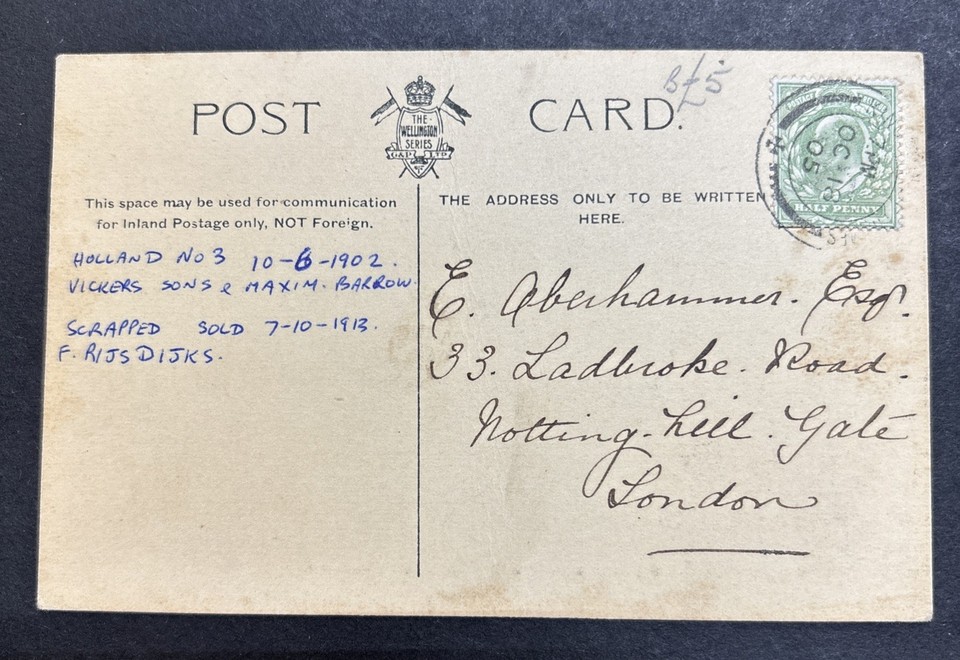 POST CARD.
B £5
THE
WELLINGTON
SERIES
G&P LTD
This space may be used for communication
for Inland Postage only, NOT Foreign.
THE ADDRESS ONLY TO BE WRITTEN
HERE.
HALF PENNY
OC 18
05
HOLLAND NO 3 10-6-1902.
VICKERS SONS & MAXIM. BARROW.
SCRAPPED SOLD 7-10-1913.
F. RIJSDIJKS.
E. Oberhammer. Esqr.
33. Ladbroke. Road.
Notting-hill. Gate
London